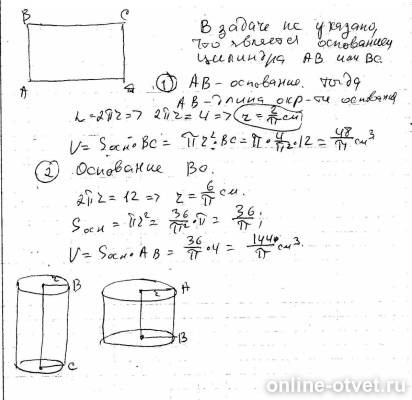 B C
A Д
В задаче не указано,
что является основанием
цилиндра АВ или ВС.
① АВ - основание. Тогда
АВ - длина окр-ти основания
L = 2πr => 2πr = 4 => r = 2/π см
V = Sосн · BC = πr² · BC = π · 4/π² · 12 = 48/π см³
② Основание ВС.
2πr = 12 => r = 6/π см.
Sосн = πr² = 36/π² · π = 36/π;
V = Sосн · AB = 36/π · 4 = 144/π см³
r B
C
r A
B
online-otvet.ru